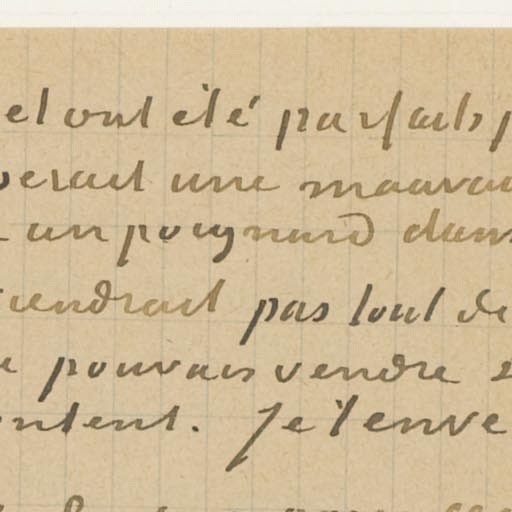 et ont été parfaits p
verait une mauvai
un poignard dans
iendrait pas tout de
pouvais vendre
ntent. Je t'enve